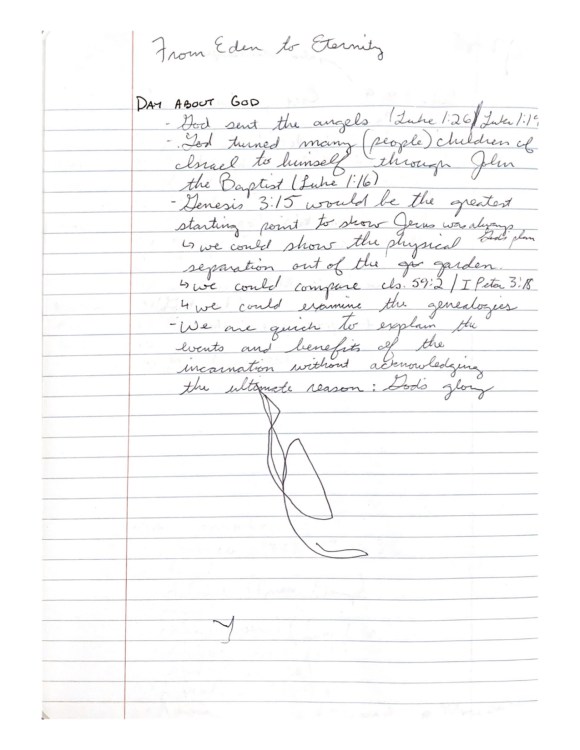 From Eden to Eternity
DAY ABOUT GOD
- God sent the angels (Luke 1:26/Luke 1:19
- God turned many (people) children of
Israel to himself through John
the Baptist (Luke 1:16)
- Genesis 3:15 would be the greatest
starting point to show Jesus was always God's plan
↳ we could show the physical
separation out of the garden.
↳ we could compare Is. 59:2 / I Peter 3:18
↳ we could examine the genealogies
- We are quick to explain the
events and benefits of the
incarnation without acknowledging
the ultimate reason: God's glory
Y